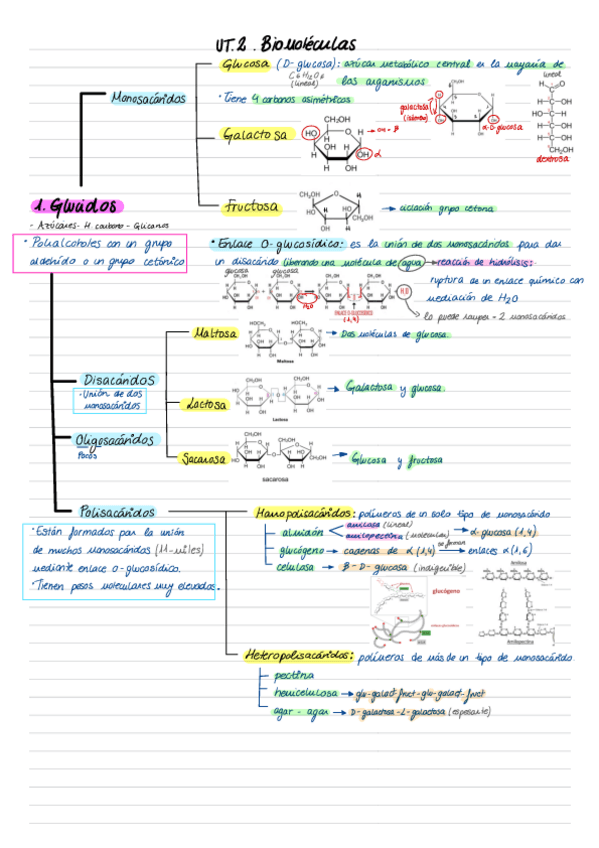 UT.2. Biomoléculas
Glucosa (D-glucosa): azúcar metabólico central en la mayoría de
C6H12O6
(lineal)
los organismos
Monosacáridos
· Tiene 4 carbonos asimétricos
lineal
galactosa
(isómero)
α-D-glucosa
dextrosa
Galactosa
CH2OH
HO
OH
α
OH = β
1. Glúcidos
- Azúcares - H. carbono - Glicanos
Fructosa
ciclación grupo cetona
· Polialcoholes con un grupo
aldehído o un grupo cetónico
· Enlace O-glucosídico: es la unión de dos monosacáridos para dar
un disacárido liberando una molécula de agua → reacción de hidrólisis:
ruptura de un enlace químico con
mediación de H2O
lo puede romper = 2 monosacáridos
glucosa
glucosa
H2O
(1,4)
Maltosa
Maltosa
→ Dos moléculas de glucosa.
Disacáridos
· Unión de dos
monosacáridos
Lactosa
Lactosa
→ Galactosa y glucosa.
Oligosacáridos
Pocos
Sacarosa
sacarosa
→ Glucosa y fructosa
Polisacáridos
· Están formados por la unión
de muchos monosacáridos (11-miles)
mediante enlace o-glucosídico.
· Tienen pesos moleculares muy elevados.
Homopolisacáridos: polímeros de un solo tipo de monosacárido
almidón
amilosa (lineal)
amilopectina (molecular)
→ α-glucosa (1,4)
se forman
glucógeno → cadenas de α(1,4) → enlaces α(1,6)
celulosa → β-D-glucosa (indigerible)
glucógeno
Amilosa
Amilopectina
Heteropolisacáridos: polímeros de más de un tipo de monosacárido
pectina
hemicelulosa → glu-galact-fruct-glu-galact-fruct
agar-agar → D-galactosa-L-galactosa (espesante)